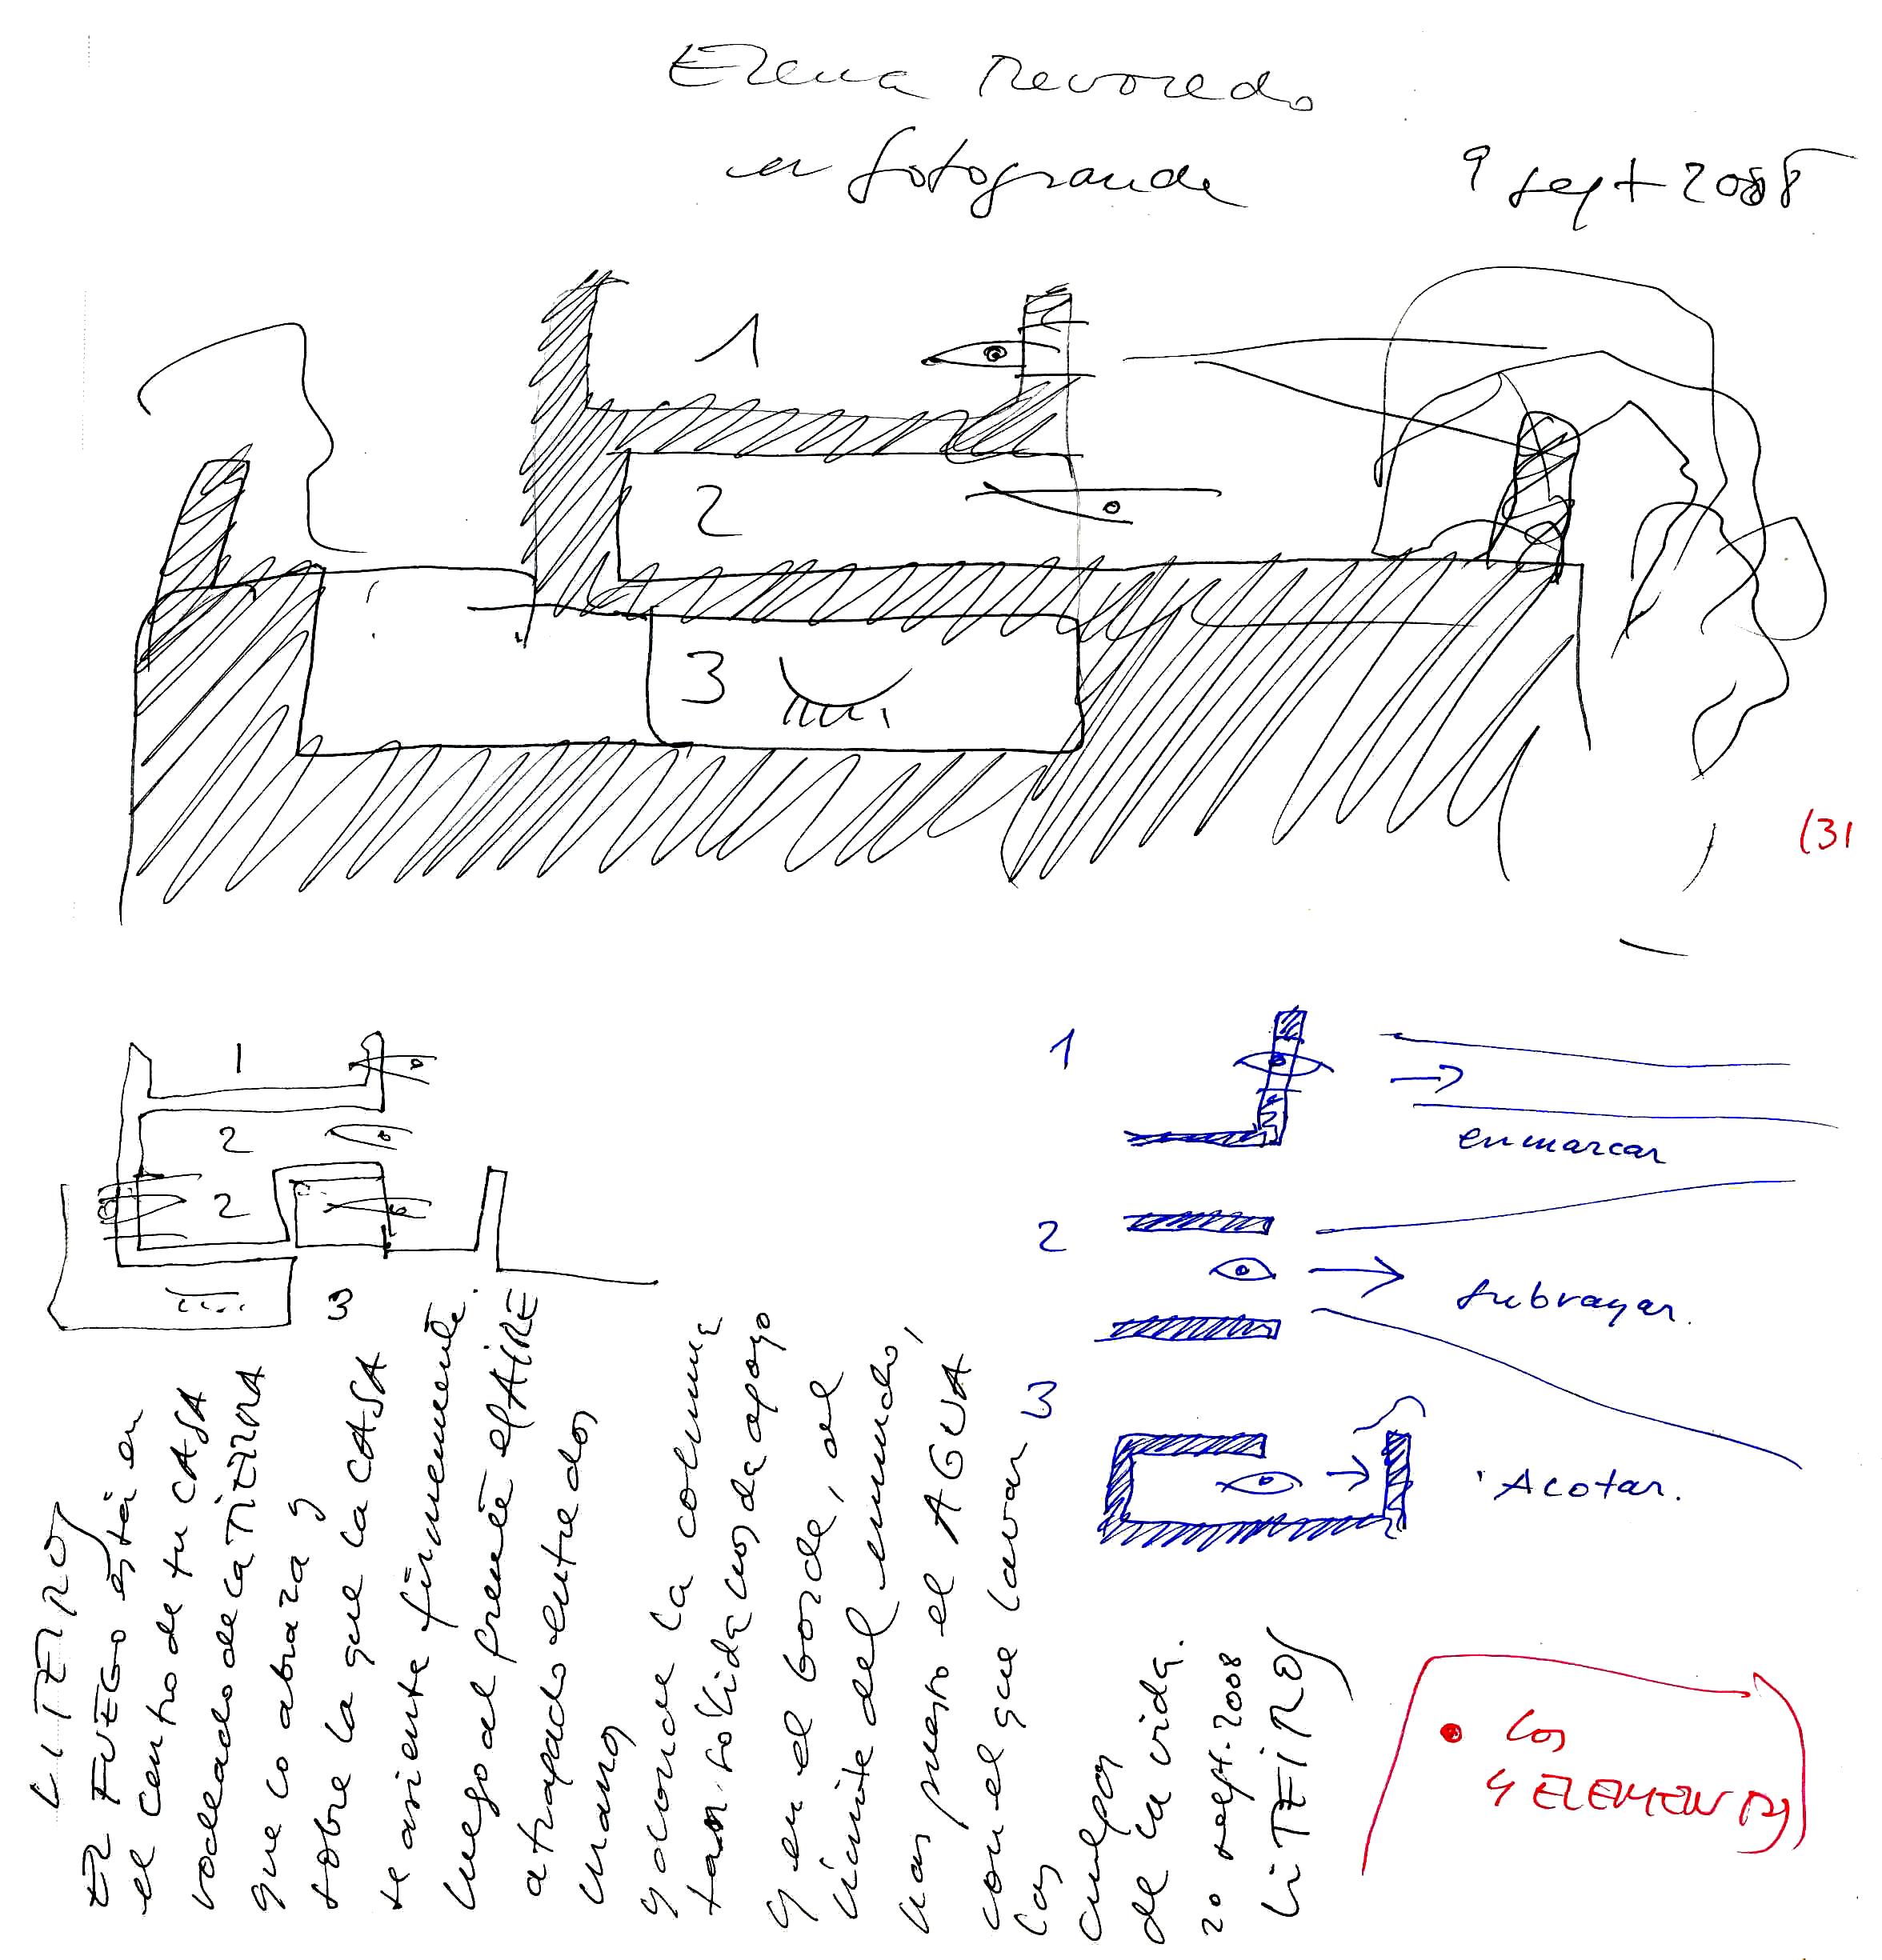 Elena Revoredo
en fotogrande
9 sept 2008
1
2
3
(31
1
2
2
3
1
enmarcar
2
subrayar.
3
Acotar.
LITEIROS
EL FUEGO está en
el centro de tu CASA
rodeado de la TIERRA
que lo abraza y
sobre la que la CASA
se asienta firmemente.
luego al frente el AIRE
atrapado entre dos
manos
y donde la columna
tan sólida nos da apoyo
y en el borde, al
límite del mundo,
has puesto el AGUA
con el que lavar
las
culpas
de la vida.
20 sept. 2008
LiTEIROS
• los
4 ELEMENTOS